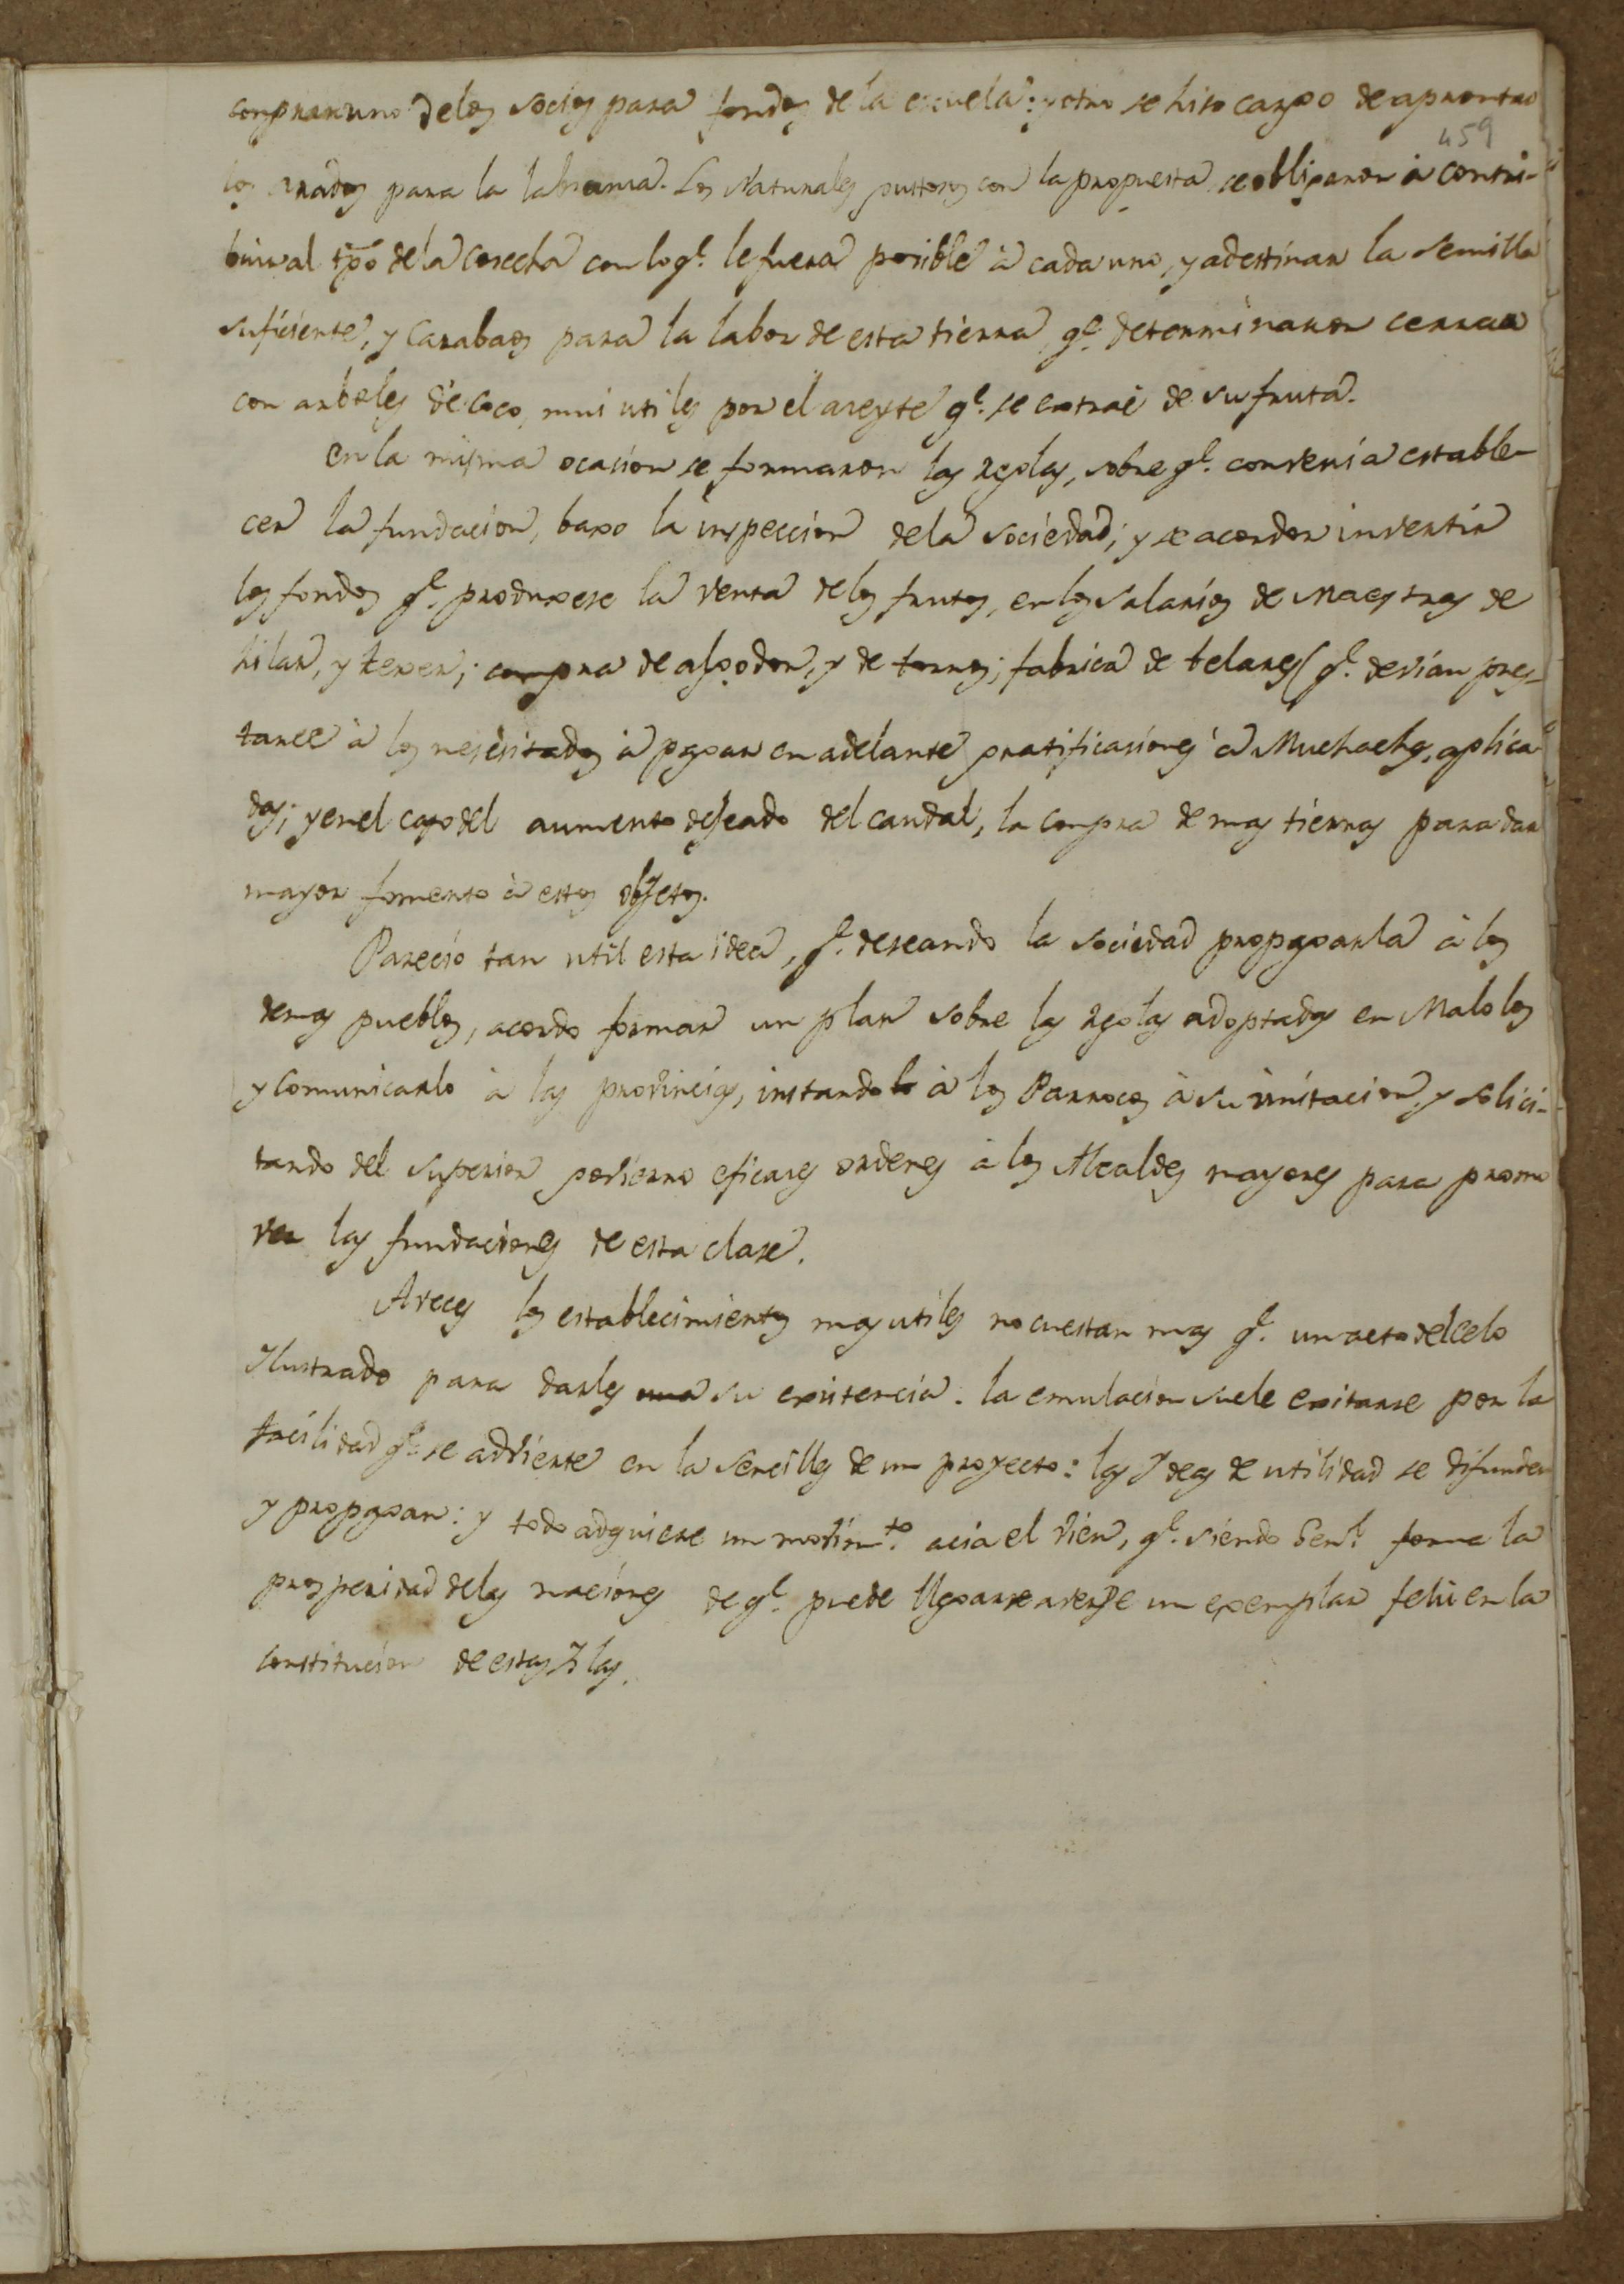 comprar uno delos socios para fondos de la escuela: y otro se hiso cargo de aprontar
459
los arados para la labransa. Los Naturales gustosos con la propuesta se obligaron à contri-
buir al tpõ dela cosecha con lo q.e le fuera posible à cada uno, y a destinar la semilla
suficiente, y Carabaos para la labor de esta tierra, q.e determinaron cercar
con arboles de coco, mui utiles por el aseyte q.e se extrae de su fruta.
En la misma ocasion se formaron las reglas, sobre q.e convenia estable-
cer la fundacion, baxo la inspeccion dela sociedad; y se acordò invertir
los fondos q.e produxese la venta delos frutos, en los salarios de Maestras de
hilar, y texer; compra de algodon, y de tornos; fabrica de telares (q.e devian pres-
tarse à los nesesitados à pagar en adelante gratificasiones à Muchachos aplica-
dos; y en el caso del aumento deseado del caudal, la compra de mas tierras para dar
mayor fomento à estos objetos.
Pareció tan util esta idea, q.e deseando la sociedad propagarla à los
demas pueblos, acordo formar un plan sobre las reglas adoptadas en Malolos
y comunicarlo à las provincias, instando à los Parrocos à su imitacion, y solici-
tando del superior govierno eficases ordenes à los Alcaldes mayores para promo
ver las fundaciones de esta clase.
Aveces los establecimientos mas utiles no cuestan mas q.e un acto del celo
Ilustrado para darles su existencia. la emulacion suele exitarse por la
facilidad q.e se advierte en la sencilles de un proyecto: las Ydeas de utilidad se difunden
y propagan: y todo adquiere un movim.to acia el vien, q.e siendo Gen.l forma la
prosperidad delas naciones de q.e puede llegar a verse un exemplar felis en la
constitucion de estas Yslas.